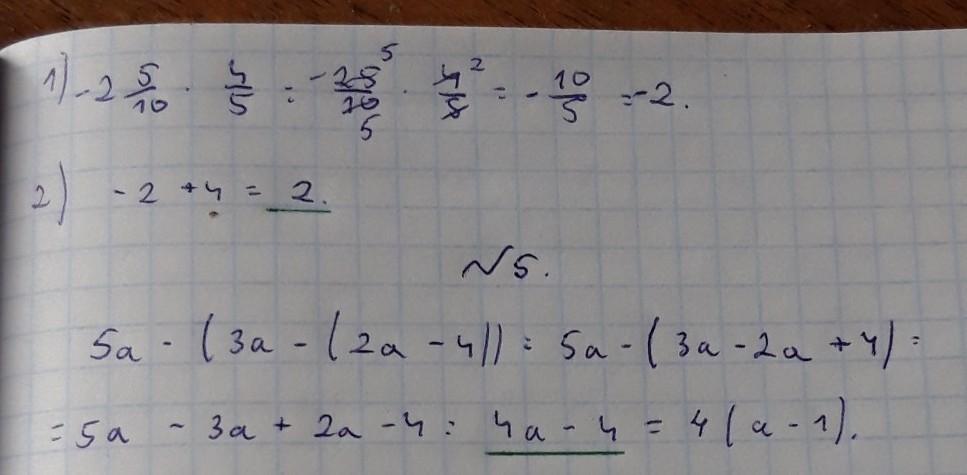 1) -2 5/10 · 4/5 = -25⁵/10 5 · 4²/5 = - 10/5 = -2.
2) -2 + 4 = 2.
№5.
5a - (3a - (2a - 4)) = 5a - (3a - 2a + 4) =
= 5a - 3a + 2a - 4 = 4a - 4 = 4(a - 1).